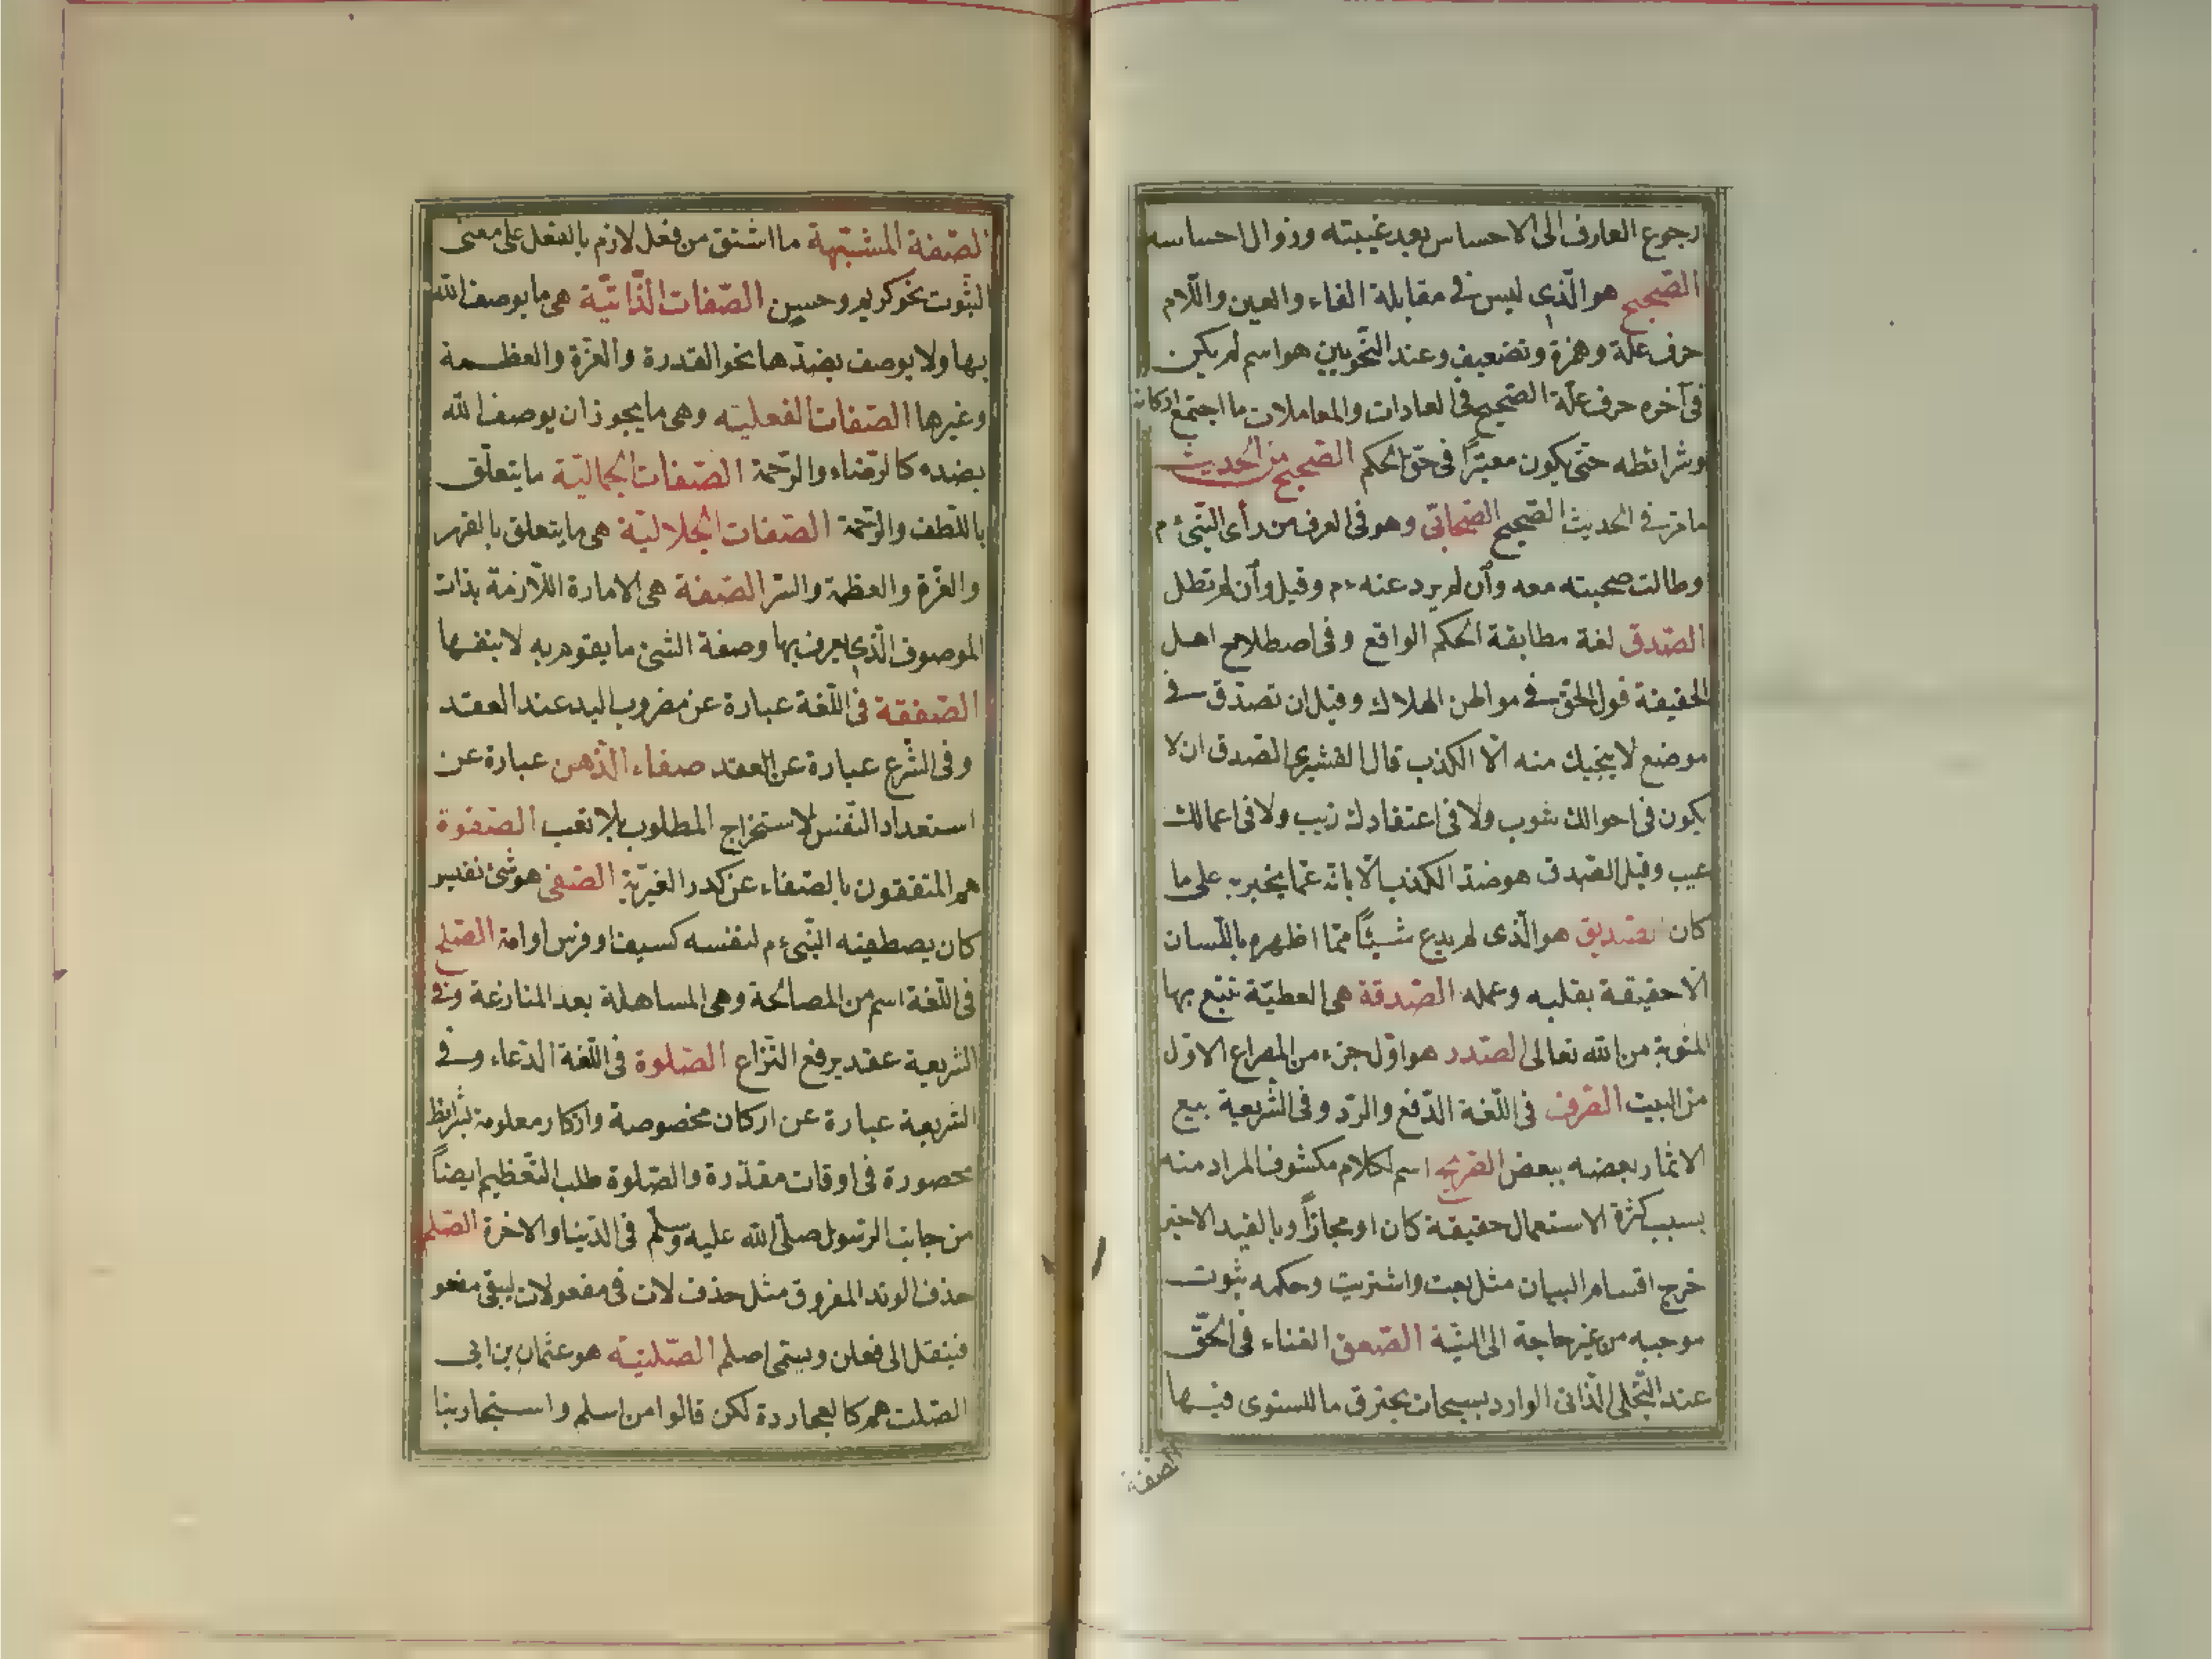 رجوع العارف الى الاحساس بعد غيبته وزوال احساسه
الصّحيح هو الّذى ليس فى مقابلة الفاء والعين واللّام
حرف علّة وهمزة وتضعيف وعند النّحويين هو اسم لم يكن
فى آخره حرف علّة الصّحيح فى العادات والمعاملات ما اجتمع اركانه
وشرائطه حتّى يكون معتبرًا فى حقّ الحكم الصّحيح من الحديث
ما مرّ فى الحديث الصّحيح الصّحابىّ وهو فى العرف من رأى النّبىّ ءم
وطالت صحبته معه وان لم يرد عنه ءم وقيل وان لم تطل
الصّدق لغة مطابقة الحكم الواقع وفى اصطلاح اهل
الحقيقة قول الحقّ فى مواطن الهلاك وقيل ان تصدّق فى
موضع لا ينجيك منه الّا الكذب قال القشيرى الصّدق ان لا
يكون فى احوالك شوب ولا فى اعتقادك ريب ولا فى اعمالك
عيب وقيل الصّدق هو ضدّ الكذب الابانة عمّا يخبر به على ما
كان الصّديق هو الّذى لم يدع شيئًا ممّا اظهره باللّسان
الّا حقيقة بقلبه وعمله الصّدقة هى العطيّة تبتغ بها
المثوبة من الله تعالى الصّدر هو اوّل جزء من المصراع الاوّل
من البيت الصّرف فى اللّغة الدّفع والردّ وفى الشّريعة بيع
الاثمار بعضه ببعض الصّريح اسم لكلام مكشوف المراد منه
بسبب كثرة الاستعمال حقيقة كان او مجازًا وبالقيد الاخير
خرج اقسام البيان مثل بعت واشتريت وحكمه ثبوت
موجبه من غير حاجة الى النّيّة الصّعق الفناء فى الحقّ
عند التّجلّى الذّاتى الوارد بسبحات يحترق ما للسّوى فيها
الصّفة
الصّفة المشبّهة ما اشتق من فعل لازم بالفعل على معنى
الثّبوت نحو كريم وحسين الصّفات الذّاتيّة هى ما يوصف الله
بها ولا يوصف بضدّها نحو القدرة والعزّة والعظمة
وغيرها الصّفات الفعليّه وهى ما يجوز ان يوصف الله
بضده كالرّضاء والرّحمة الصّفات الجماليّة ما يتعلّق
باللّطف والرّحمة الصّفات الجلاليّة هى ما يتعلق بالقهر
والعزّة والعظمة والسّر الصّفة هى الامارة اللّازمة بذات
الموصوف الّذى يعرف بها وصفة الشئ ما يقوم به لا بنفسها
الصّفقة فى اللّغة عبارة عن مضروب اليد عند العقد
وفى الشّرع عبارة عن العقد صفاء الذّهن عبارة عن
استعداد النّفس لاستخراج المطلوب بلا تعب الصّفوة
هم المتفقون بالصّفاء عن كدر الغيريّة الصّفى هو شئ نفيس
كان يصطفيه النّبىّ ءم لنفسه كسيف او فرس او امة الصّلح
فى اللّغة اسم من المصالحة وهى المساهلة بعد المنازعة وفى
الشريعة عقد يرفع النّزاع الصّلوة فى اللّغة الدّعاء وفى
الشريعة عبارة عن اركان مخصوصة واذكار معلومة بشرائط
محصورة فى اوقات مقدّرة والصّلوة طلب التّعظيم ايضًا
من جانب الرّسول صلّى الله عليه وسلّم فى الدّنيا والاخرة الصّلم
حذف الوتد المفروق مثل حذف لات فى مفعولات ليبقى مفعو
فينقل الى فعلن ويسمّى اصلم الصّلتيّة هو عثمان بن ابى
الصّلت هم كالعجاردة لكن قالوا من اسلم واستجار بنا